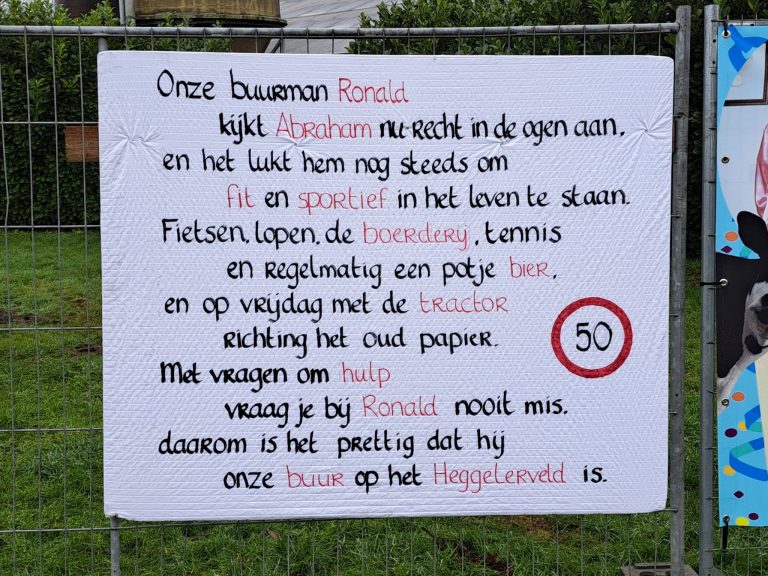 Onze buurman Ronald
kijkt Abraham nu recht in de ogen aan,
en het lukt hem nog steeds om
fit en sportief in het leven te staan.
Fietsen, lopen, de boerderij, tennis
en regelmatig een potje bier,
en op vrijdag met de tractor
richting het oud papier.
50
Met vragen om hulp
vraag je bij Ronald nooit mis.
daarom is het prettig dat hij
onze buur op het Heggelerveld is.